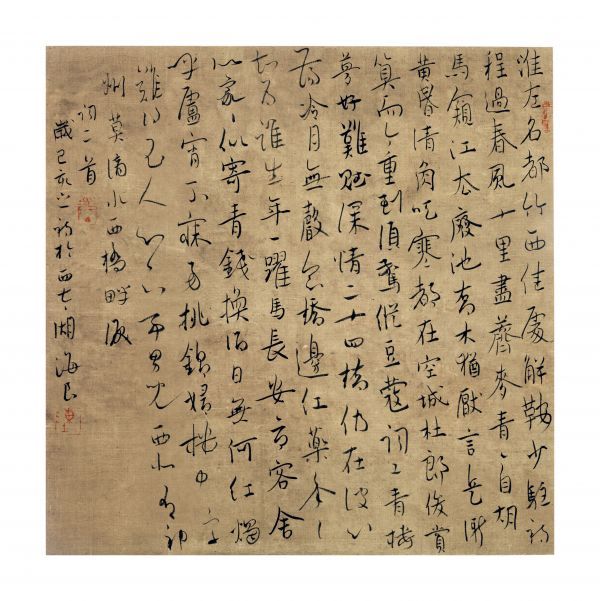 淮左名都竹西佳處解鞍少駐初
程過春風十里盡薺麥青々自胡
馬窺江去廢池喬木猶厭言兵漸
黃昏清角吹寒都在空城杜郎俊賞
算而今重到須驚縱豆蔻詞工青樓
夢好難賦深情二十四橋仍在波心
蕩冷月無聲念橋邊紅藥年々
知為誰生年々躍馬長安市客舍
似家々似寄青錢換酒日無何紅燭
呼盧宵不寐易挑錦婦機中字
難得玉人心下事男兒西北有神
州莫滴水西橋畔淚
詞二首
歲己亥之初於西湖海民